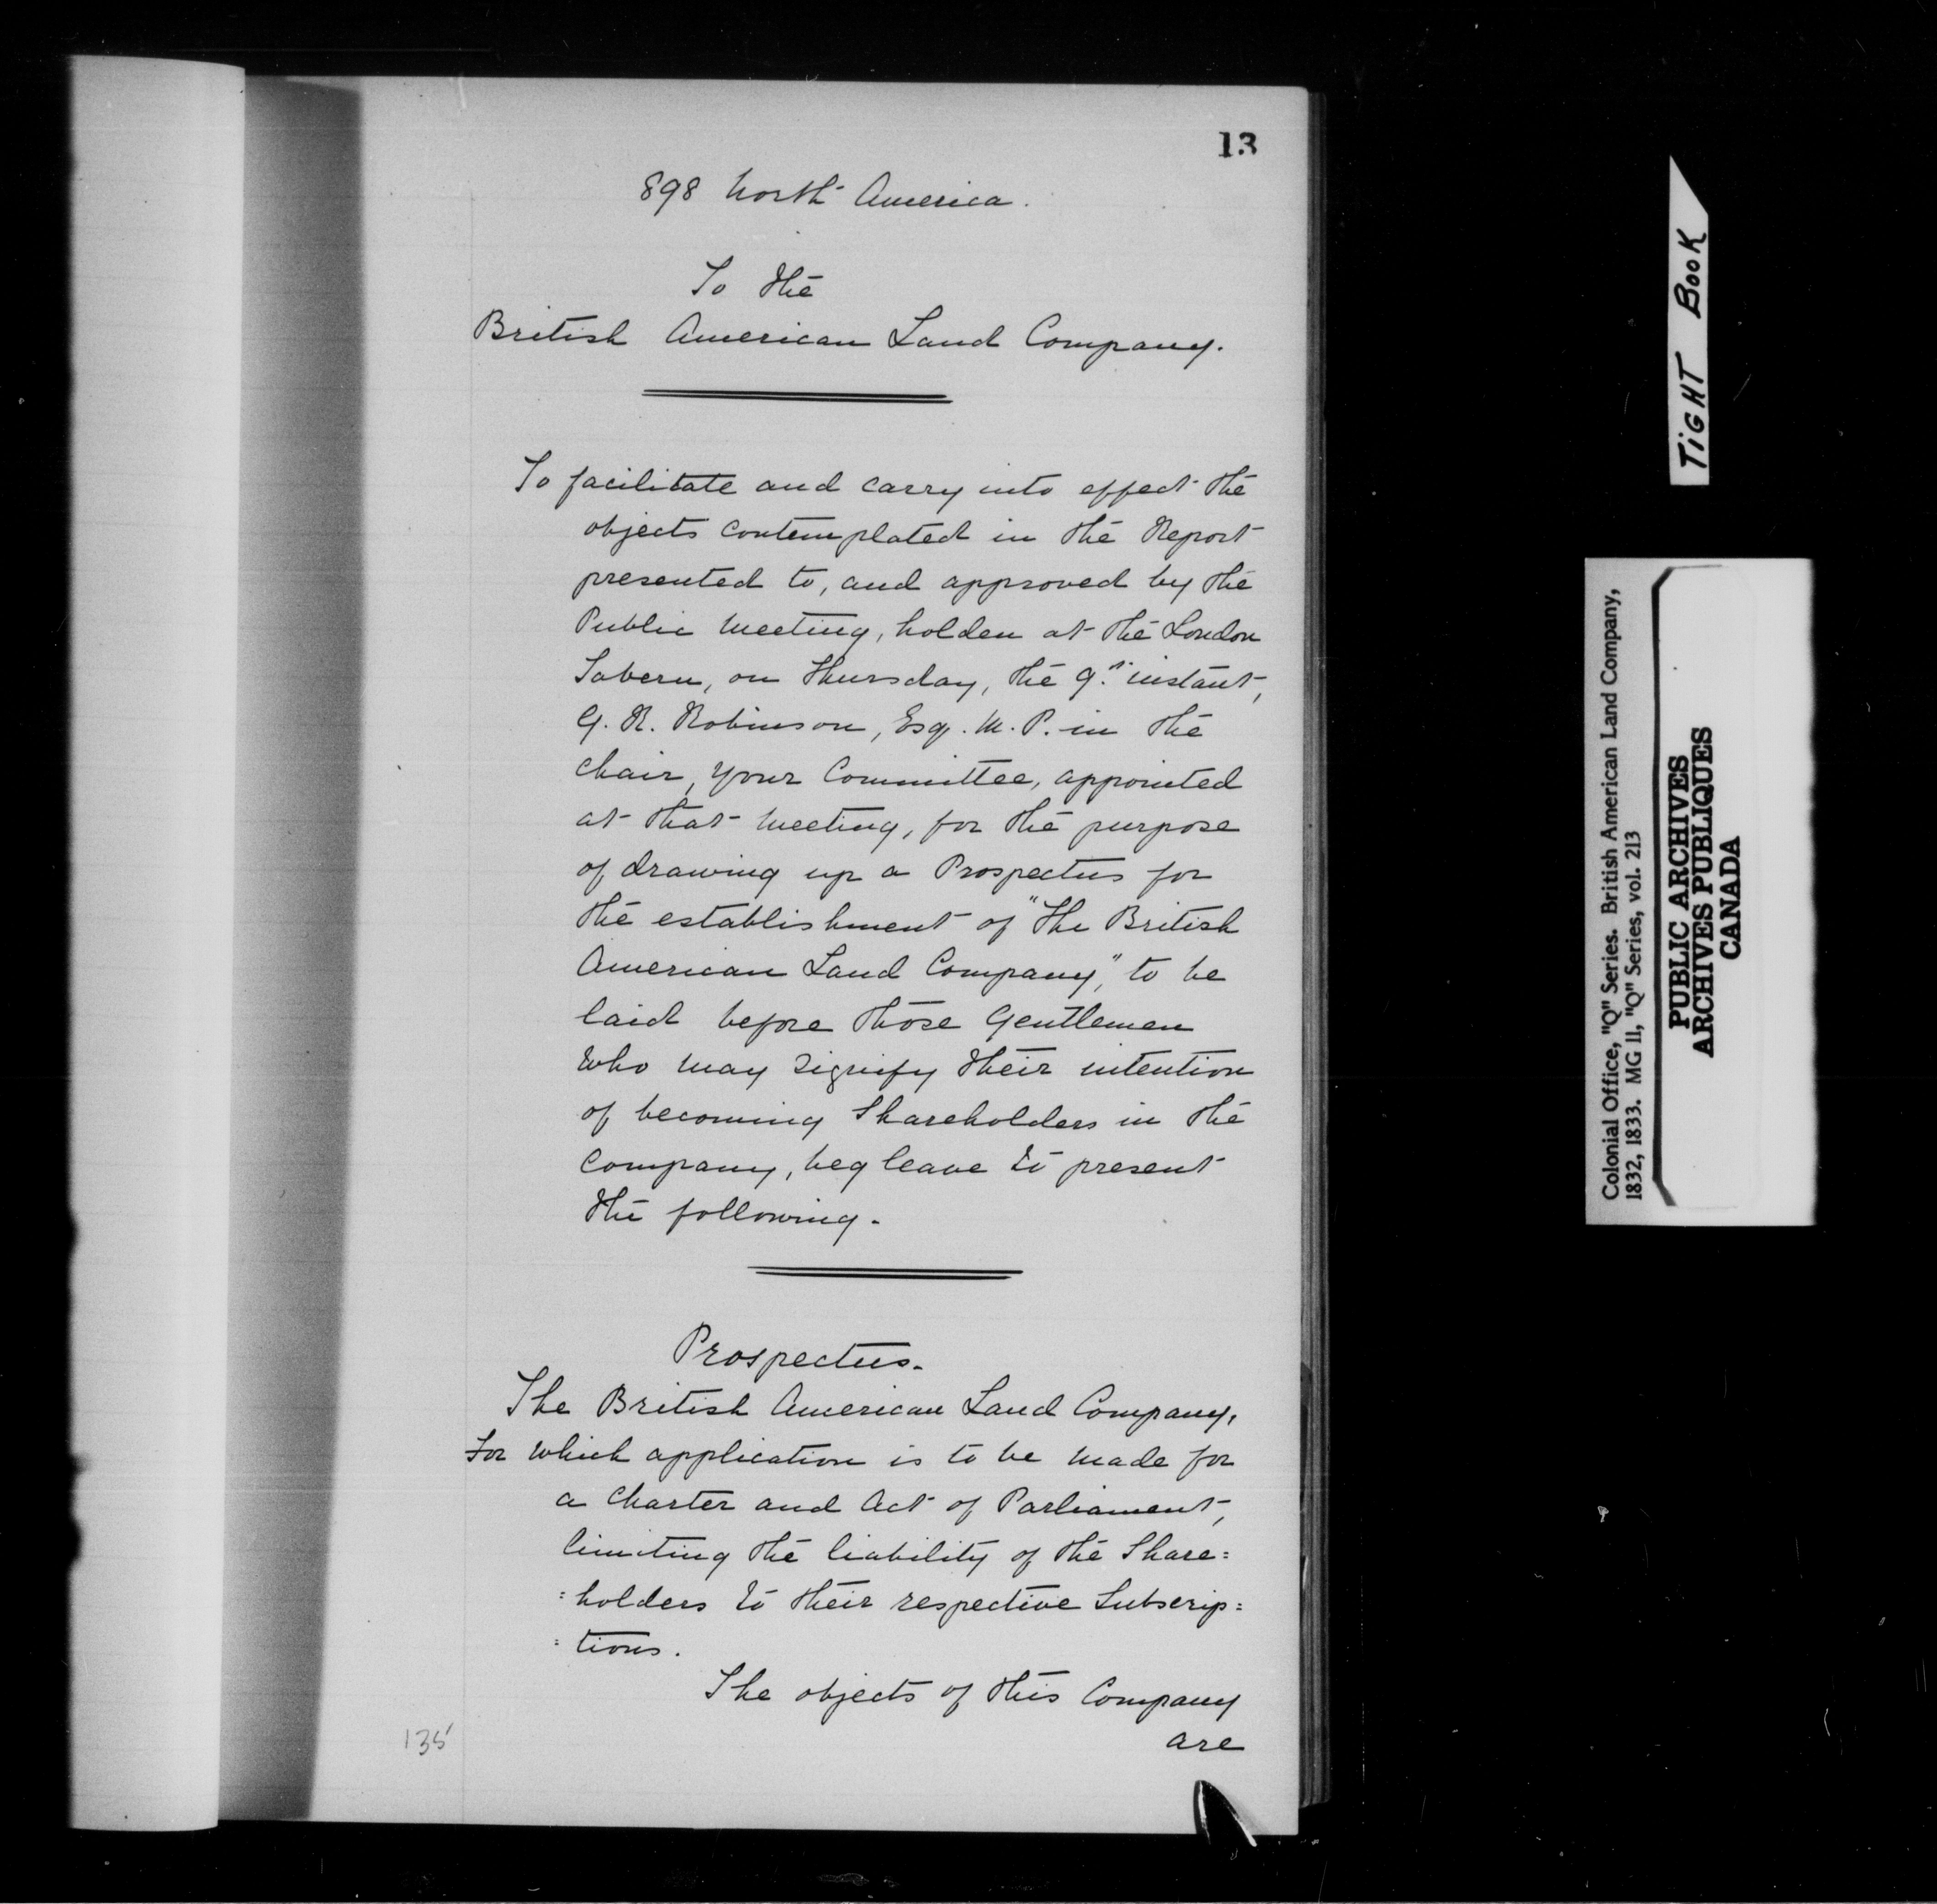 13
898 North America.
To the
British American Land Company.
To facilitate and carry into effect the
objects contemplated in the Report
presented to, and approved by the
Public Meeting, holden at the London
Tavern, on Thursday, the 9th instant,
G. R. Robinson, Esq. M. P. in the
chair, your Committee, appointed
at that Meeting, for the purpose
of drawing up a Prospectus for
the establishment of "The British
American Land Company," to be
laid before those Gentlemen
who may signify their intention
of becoming Shareholders in the
Company, beg leave to present
the following.
Prospectus.
The British American Land Company,
For which application is to be made for
a Charter and Act of Parliament,
limiting the liability of the Share=
=holders to their respective Subscrip=
=tions.
The objects of this Company
are
135
TIGHT BOOK
Colonial Office, "Q" Series. British American Land Company,
1832, 1833. MG 11, "Q" Series, vol. 213
PUBLIC ARCHIVES
ARCHIVES PUBLIQUES
CANADA